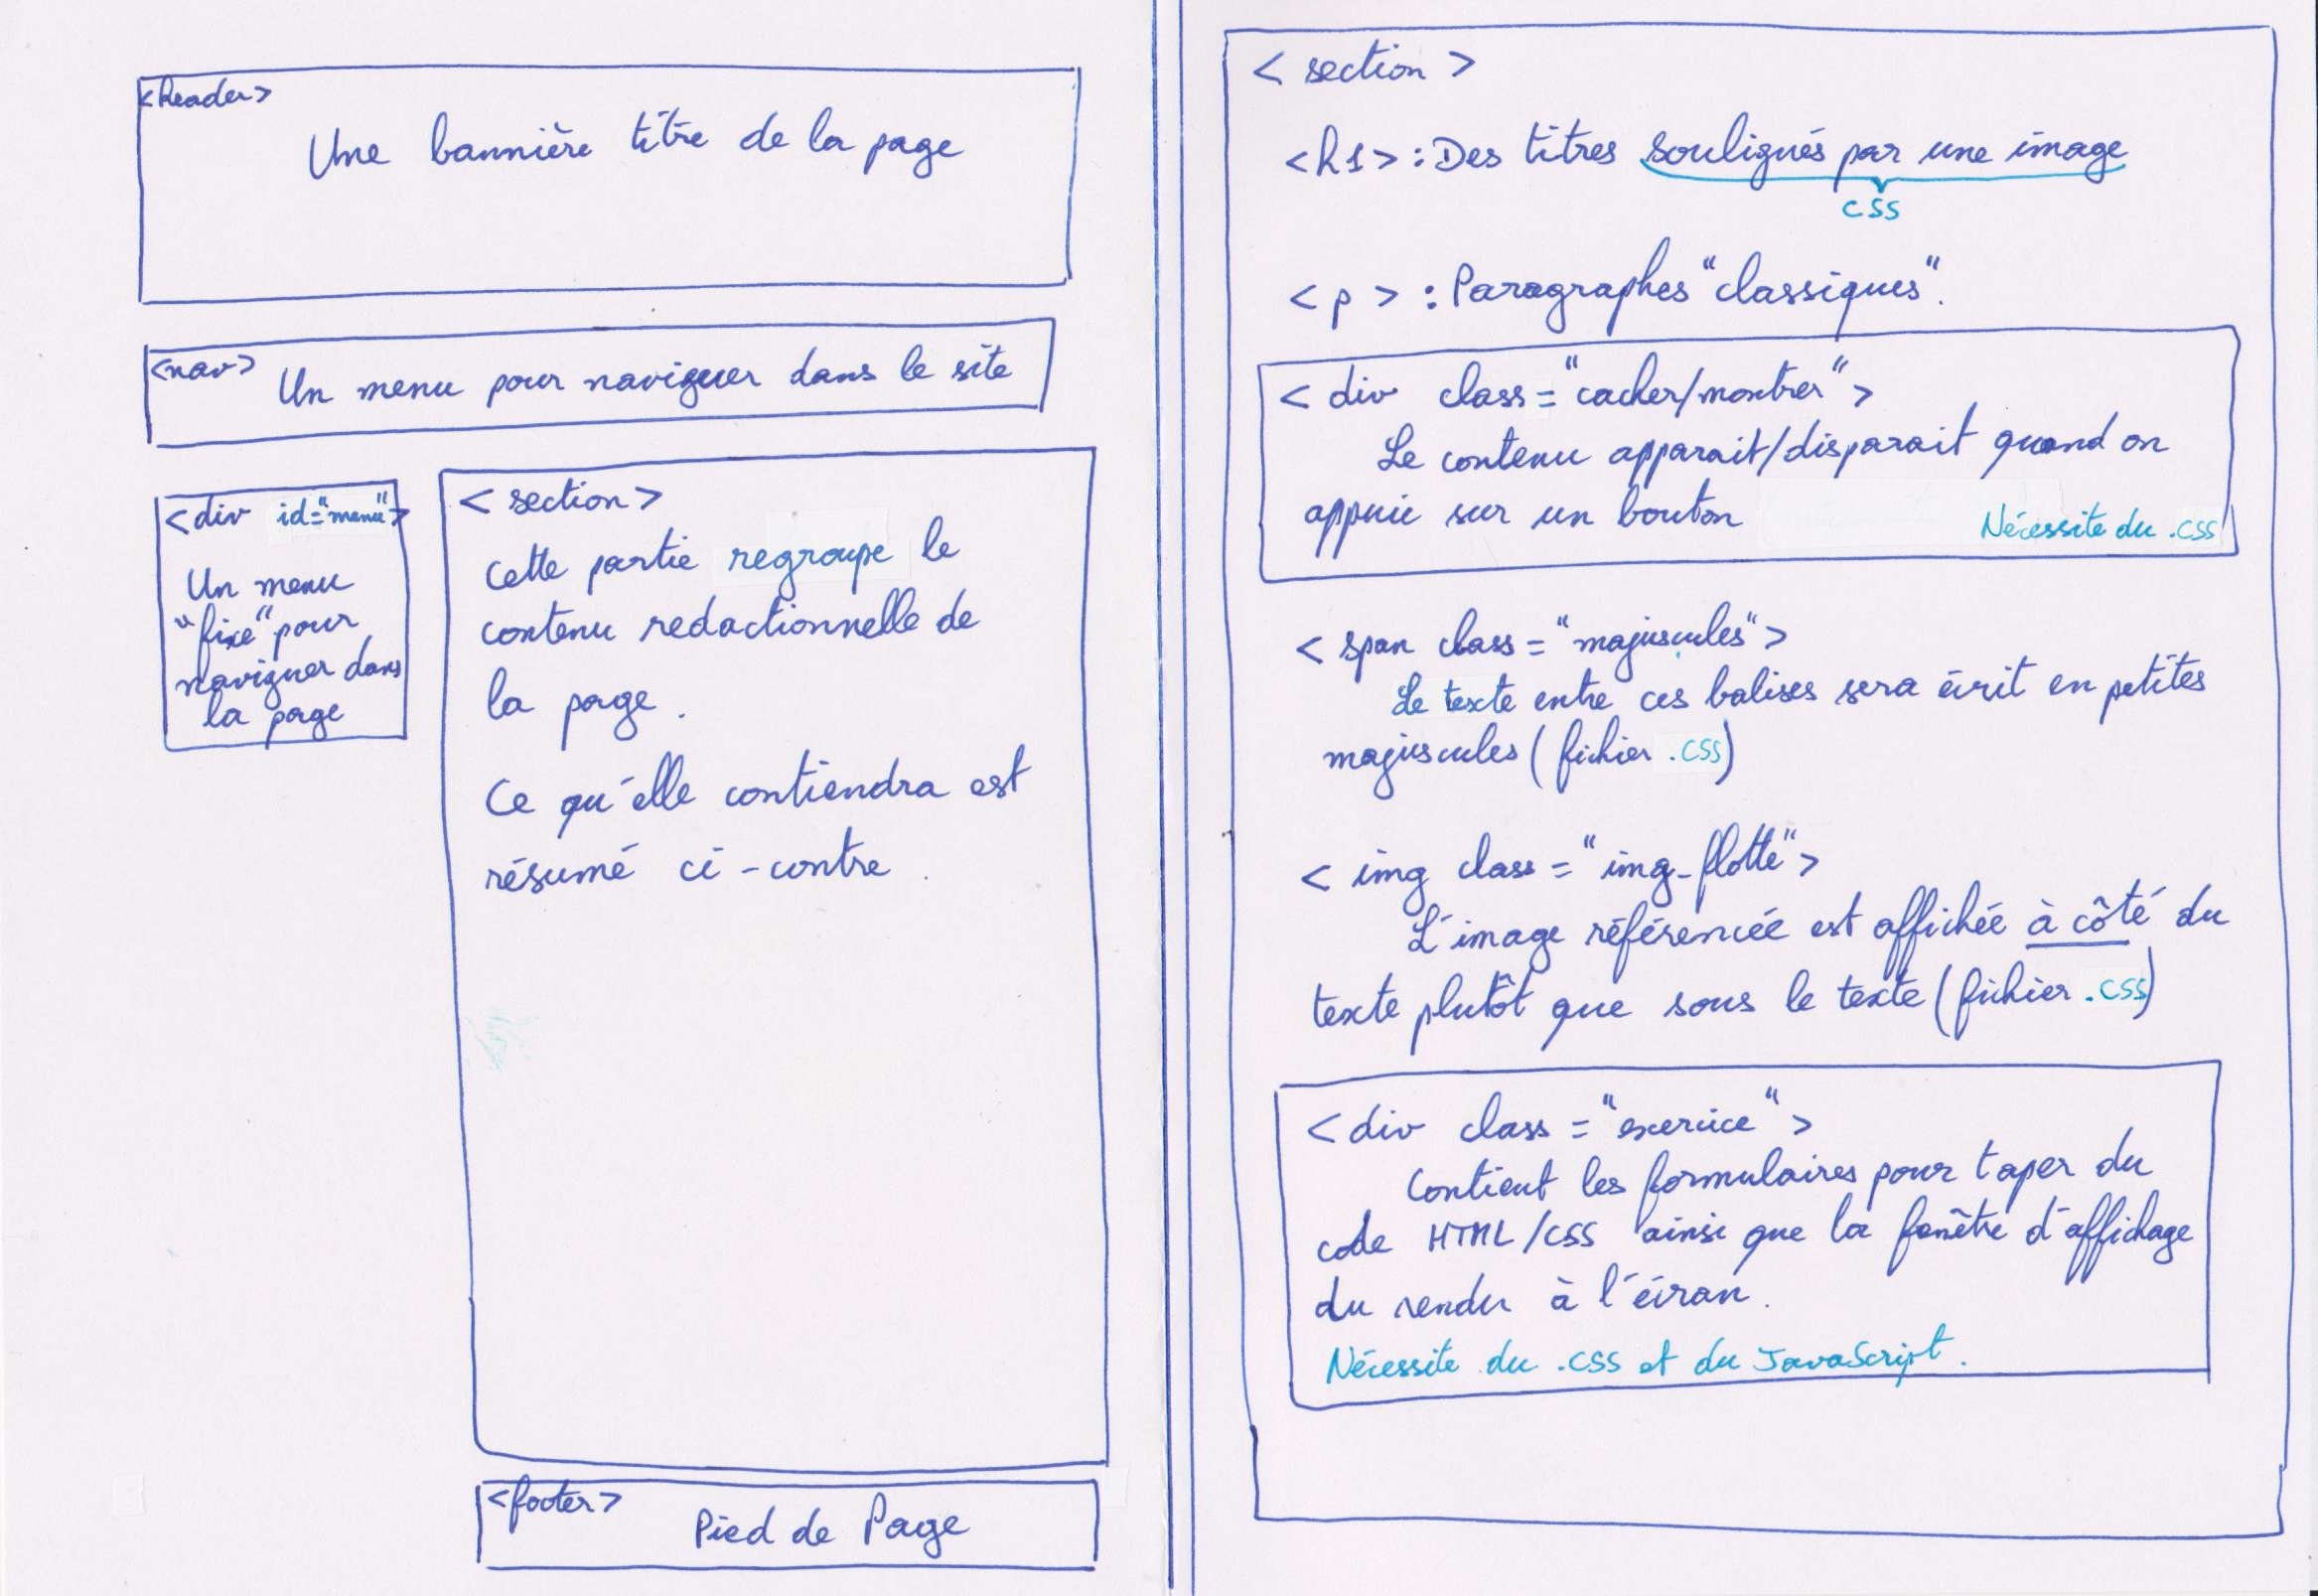 <header>
Une bannière titre de la page
<nav>
Un menu pour naviguer dans le site
<div id="menu">
Un menu
"fixe" pour
naviguer dans
la page
<section>
Cette partie regroupe le
contenu redactionnelle de
la page.
Ce qu'elle contiendra est
résumé ci-contre.
<footer>
Pied de Page
<section>
<h1> : Des titres soulignés par une image
CSS
<p> : Paragraphes "classiques".
<div class="cacher/montrer">
Le contenu apparait/disparait quand on
appuie sur un bouton
Nécessite du .CSS
<span class="majuscules">
Le texte entre ces balises sera écrit en petites
majuscules (fichier .CSS)
<img class="img_flotte">
L'image référencée est affichée à côté du
texte plutôt que sous le texte (fichier .CSS)
<div class="exercice">
Contient les formulaires pour taper du
code HTML/CSS ainsi que la fenêtre d'affichage
du rendu à l'écran.
Nécessite du .CSS et du JavaScript.